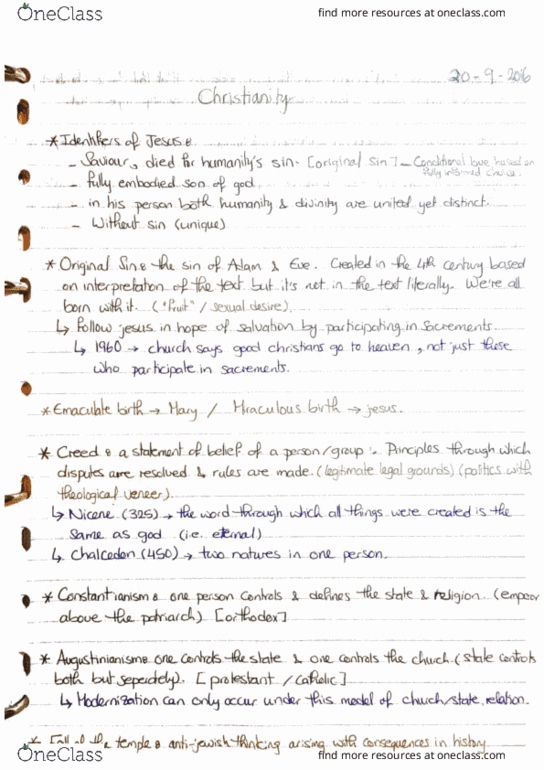 OneClass
find more resources at oneclass.com
20-9-2016
Christianity
* Identifiers of Jesus:
- Saviour, died for humanity's sin. [original sin] - Conditional love based on
fully informed choice.
- fully embodied son of god
- in his person both humanity & divinity are united yet distinct.
- Without sin (unique)
* Original Sin: the sin of Adam & Eve. Created in the 4th century based
on interpretation of the text but it's not in the text literally. We're all
born with it. ("fruit" / sexual desire).
↳ Follow jesus in hope of salvation by participating in Sacrements.
↳ 1960 → church says good christians go to heaven, not just these
who participate in sacrements.
* Emaculate birth → Mary / Miraculous birth → jesus.
* Creed: a statement of belief of a person/group :. Principles through which
disputes are resolved & rules are made. (legitimate legal grounds) (politics with
theological veneer).
↳ Nicene (325) → the word through which all things were created is the
same as god (i.e. eternal)
↳ Chalcedon (450) → two natures in one person.
* Constantianism: one person controls & defines the state & religion. (emperor
above the patriarch) [orthodox]
* Augustinianism: one controls the state & one controls the church. (state controls
both but seperately). [protestant / catholic]
↳ Modernization can only occur under this model of church/state relation.
* Fall of the temple: anti-jewish thinking arising with consequences in history
OneClass
find more resources at oneclass.com